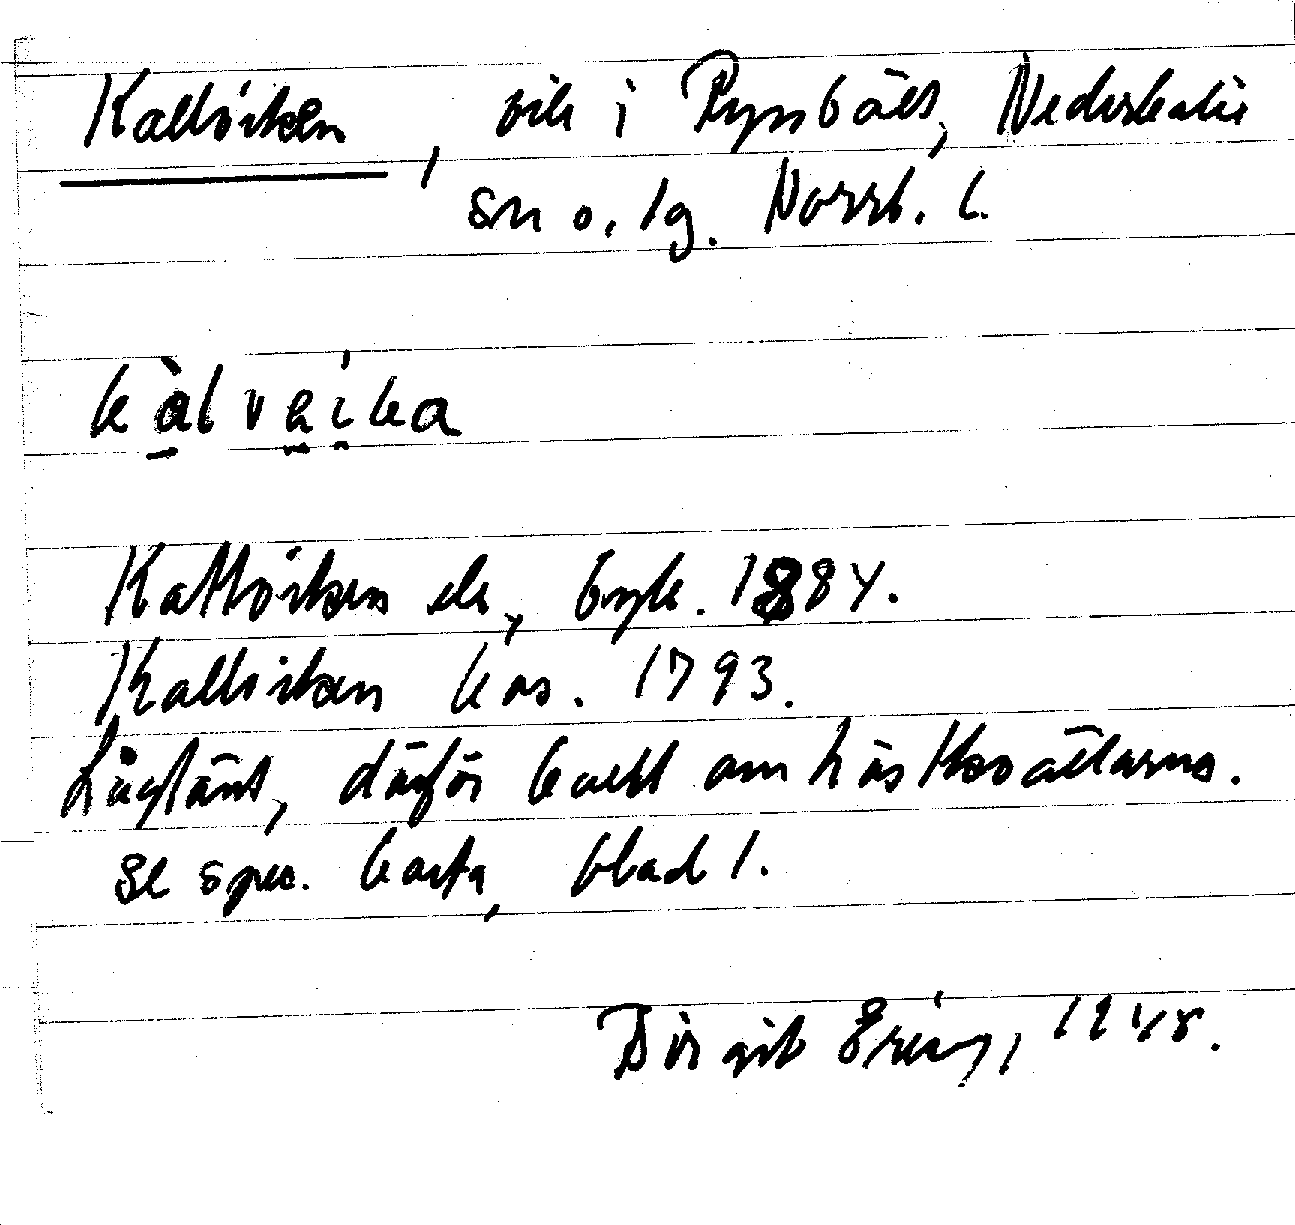 Kallviken, vik i Ryssbält, Nederkalix
sn o. lg. Norrb. l.
kàlvéika
Kallviken ek, byk. 1884.
Kallviken kos. 1793.
Låglänt, därför kallt om höstkvällarna.
se spec. karta, blad 1.
Birgit Ering, 1948.